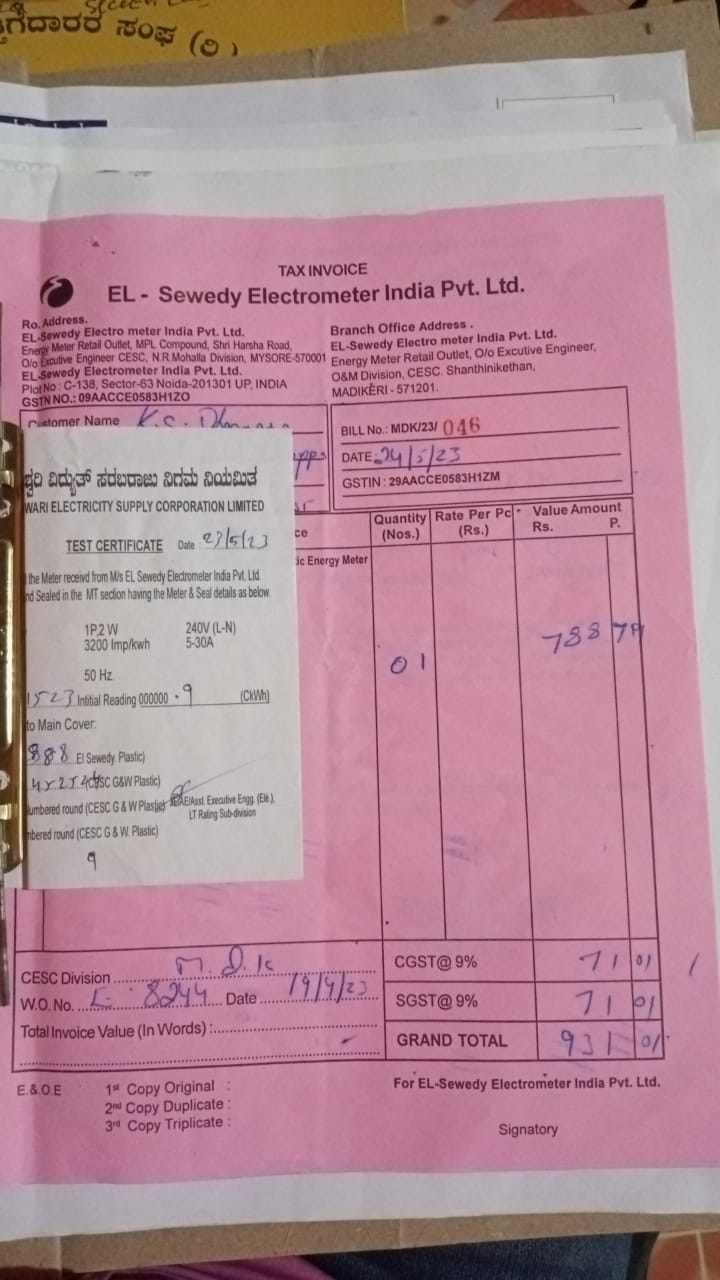 ತ್ತಿಗೆದಾರರ ಸಂಘ (ರಿ)
TAX INVOICE
EL - Sewedy Electrometer India Pvt. Ltd.
Ro. Address.
EL-Sewedy Electro meter India Pvt. Ltd.
Energy Meter Retail Outlet, MPL Compound, Shri Harsha Road,
O/o Excutive Engineer CESC, N.R.Mohalla Division, MYSORE-570001
EL-Sewedy Electrometer India Pvt. Ltd.
Plot No : C-138, Sector-63 Noida-201301 UP, INDIA
GSTN NO.: 09AACCE0583H1ZO
Branch Office Address .
EL-Sewedy Electro meter India Pvt. Ltd.
Energy Meter Retail Outlet, O/o Excutive Engineer,
O&M Division, CESC. Shanthinikethan,
MADIKERI - 571201.
Customer Name K.S.
BILL No.: MDK/23/ 046
DATE: 24/5/23
GSTIN : 29AACCE0583H1ZM
ಶ್ವರಿ ವಿದ್ಯುತ್ ಸರಬರಾಜು ನಿಗಮ ನಿಯಮಿತ
WARI ELECTRICITY SUPPLY CORPORATION LIMITED
TEST CERTIFICATE Date : 23/5/23
the Meter receivd from M/s EL Sewedy Electrometer India Pvt. Ltd.
nd Sealed in the MT section having the Meter & Seal details as below.
1P,2 W 240V (L-N)
3200 Imp/kwh 5-30A
50 Hz.
1523 Intitial Reading 000000 . 9 (CkWh)
to Main Cover:
888 El Sewedy. Plastic)
CESC G&W Plastic)
umbered round (CESC G & W Plastic) AE/Asst. Executive Engg. (Ele.),
LT Rating Sub-division
mbered round (CESC G & W. Plastic)
9
ce Quantity (Nos.) Rate Per Pc (Rs.) Value Amount Rs. P.
ic Energy Meter
01 788 79
CESC Division M.D.K CGST@ 9% 71 01
W.O. No. 8244 Date 19/4/23 SGST@ 9% 71 01
Total Invoice Value (In Words) : GRAND TOTAL 931 01
E.& O.E 1st Copy Original :
2nd Copy Duplicate :
3rd Copy Triplicate :
For EL-Sewedy Electrometer India Pvt. Ltd.
Signatory